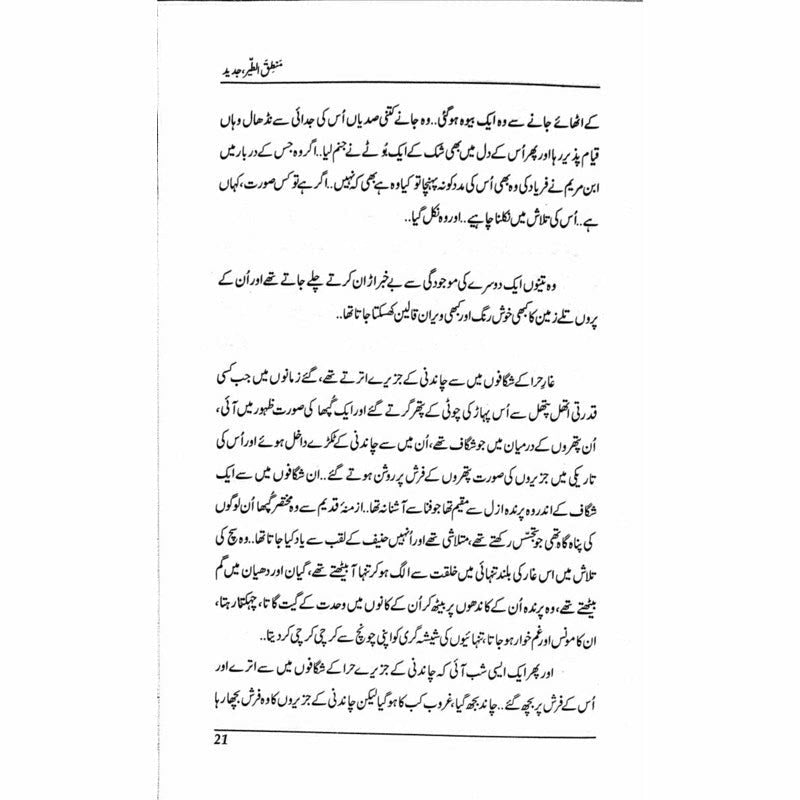 منطق الطّیر، جدید
کے اٹھائے جانے سے وہ ایک بیوہ ہوگئی..وہ جانے کتنی صدیاں اُس کی جدائی سے نڈھال وہاں
قیام پذیر رہا اور پھر اُس کے دل میں بھی شک کے ایک بُوٹے نے جنم لیا..اگر وہ جس کے دربار میں
ابن مریم نے فریاد کی وہ بھی اُس کی مدد کو نہ پہنچا تو کیا وہ ہے بھی کہ نہیں..اگر ہے تو کس صورت، کہاں
ہے..اُس کی تلاش میں نکلنا چاہیے..اور وہ نکل گیا..
وہ تینوں ایک دوسرے کی موجودگی سے بے خبر اڑان کرتے چلے جاتے تھے اور اُن کے
پروں تلے زمین کا کبھی خوش رنگ اور کبھی ویران قالین کھسکتا جاتا تھا..
غارِ حرا کے شگافوں میں سے چاندنی کے جزیرے اترتے تھے، گئے زمانوں میں جب کسی
قدرتی اتھل پتھل سے اُس پہاڑ کی چوٹی کے پتھر گرتے گئے اور ایک گپھا کی صورت ظہور میں آئی،
اُن پتھروں کے درمیان میں جو شگاف تھے، اُن میں سے چاندنی کے ٹکڑے داخل ہوئے اور اُس کی
تاریکی میں جزیروں کی صورت پتھروں کے فرش پر روشن ہوتے گئے..ان شگافوں میں سے ایک
شگاف کے اندر وہ پرندہ ازل سے مقیم تھا جو فنا سے آشنا نہ تھا..ازمنۂ قدیم سے وہ مختصر گُپھا اُن لوگوں
کی پناہ گاہ تھی جو تجسّس رکھتے تھے، متلاشی تھے اور اُنہیں حنیف کے لقب سے یاد کیا جاتا تھا..وہ سچ کی
تلاش میں اس غار کی بلند تنہائی میں خلقت سے الگ ہو کر تنہا آ بیٹھتے تھے، گیان اور دھیان میں گم
بیٹھتے تھے، وہ پرندہ اُن کے کاندھوں پر بیٹھ کر اُن کے کانوں میں وحدت کے گیت گاتا، چہکتا رہتا،
ان کا مونس اور غم خوار ہو جاتا، تنہائیوں کی شیشہ گری کو اپنی چونچ سے کرچی کرچی کر دیتا..
اور پھر ایک ایسی شب آئی کہ چاندنی کے جزیرے حرا کے شگافوں میں سے اترے اور
اُس کے فرش پر بچھ گئے..چاند بجھ گیا، غروب کب کا ہو گیا لیکن چاندنی کے جزیروں کا وہ فرش بچھا رہا
21